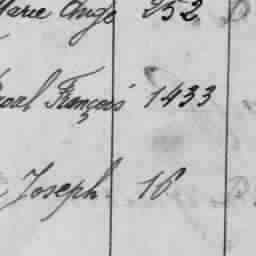 Marie Ange 252
François 1433
Joseph 16